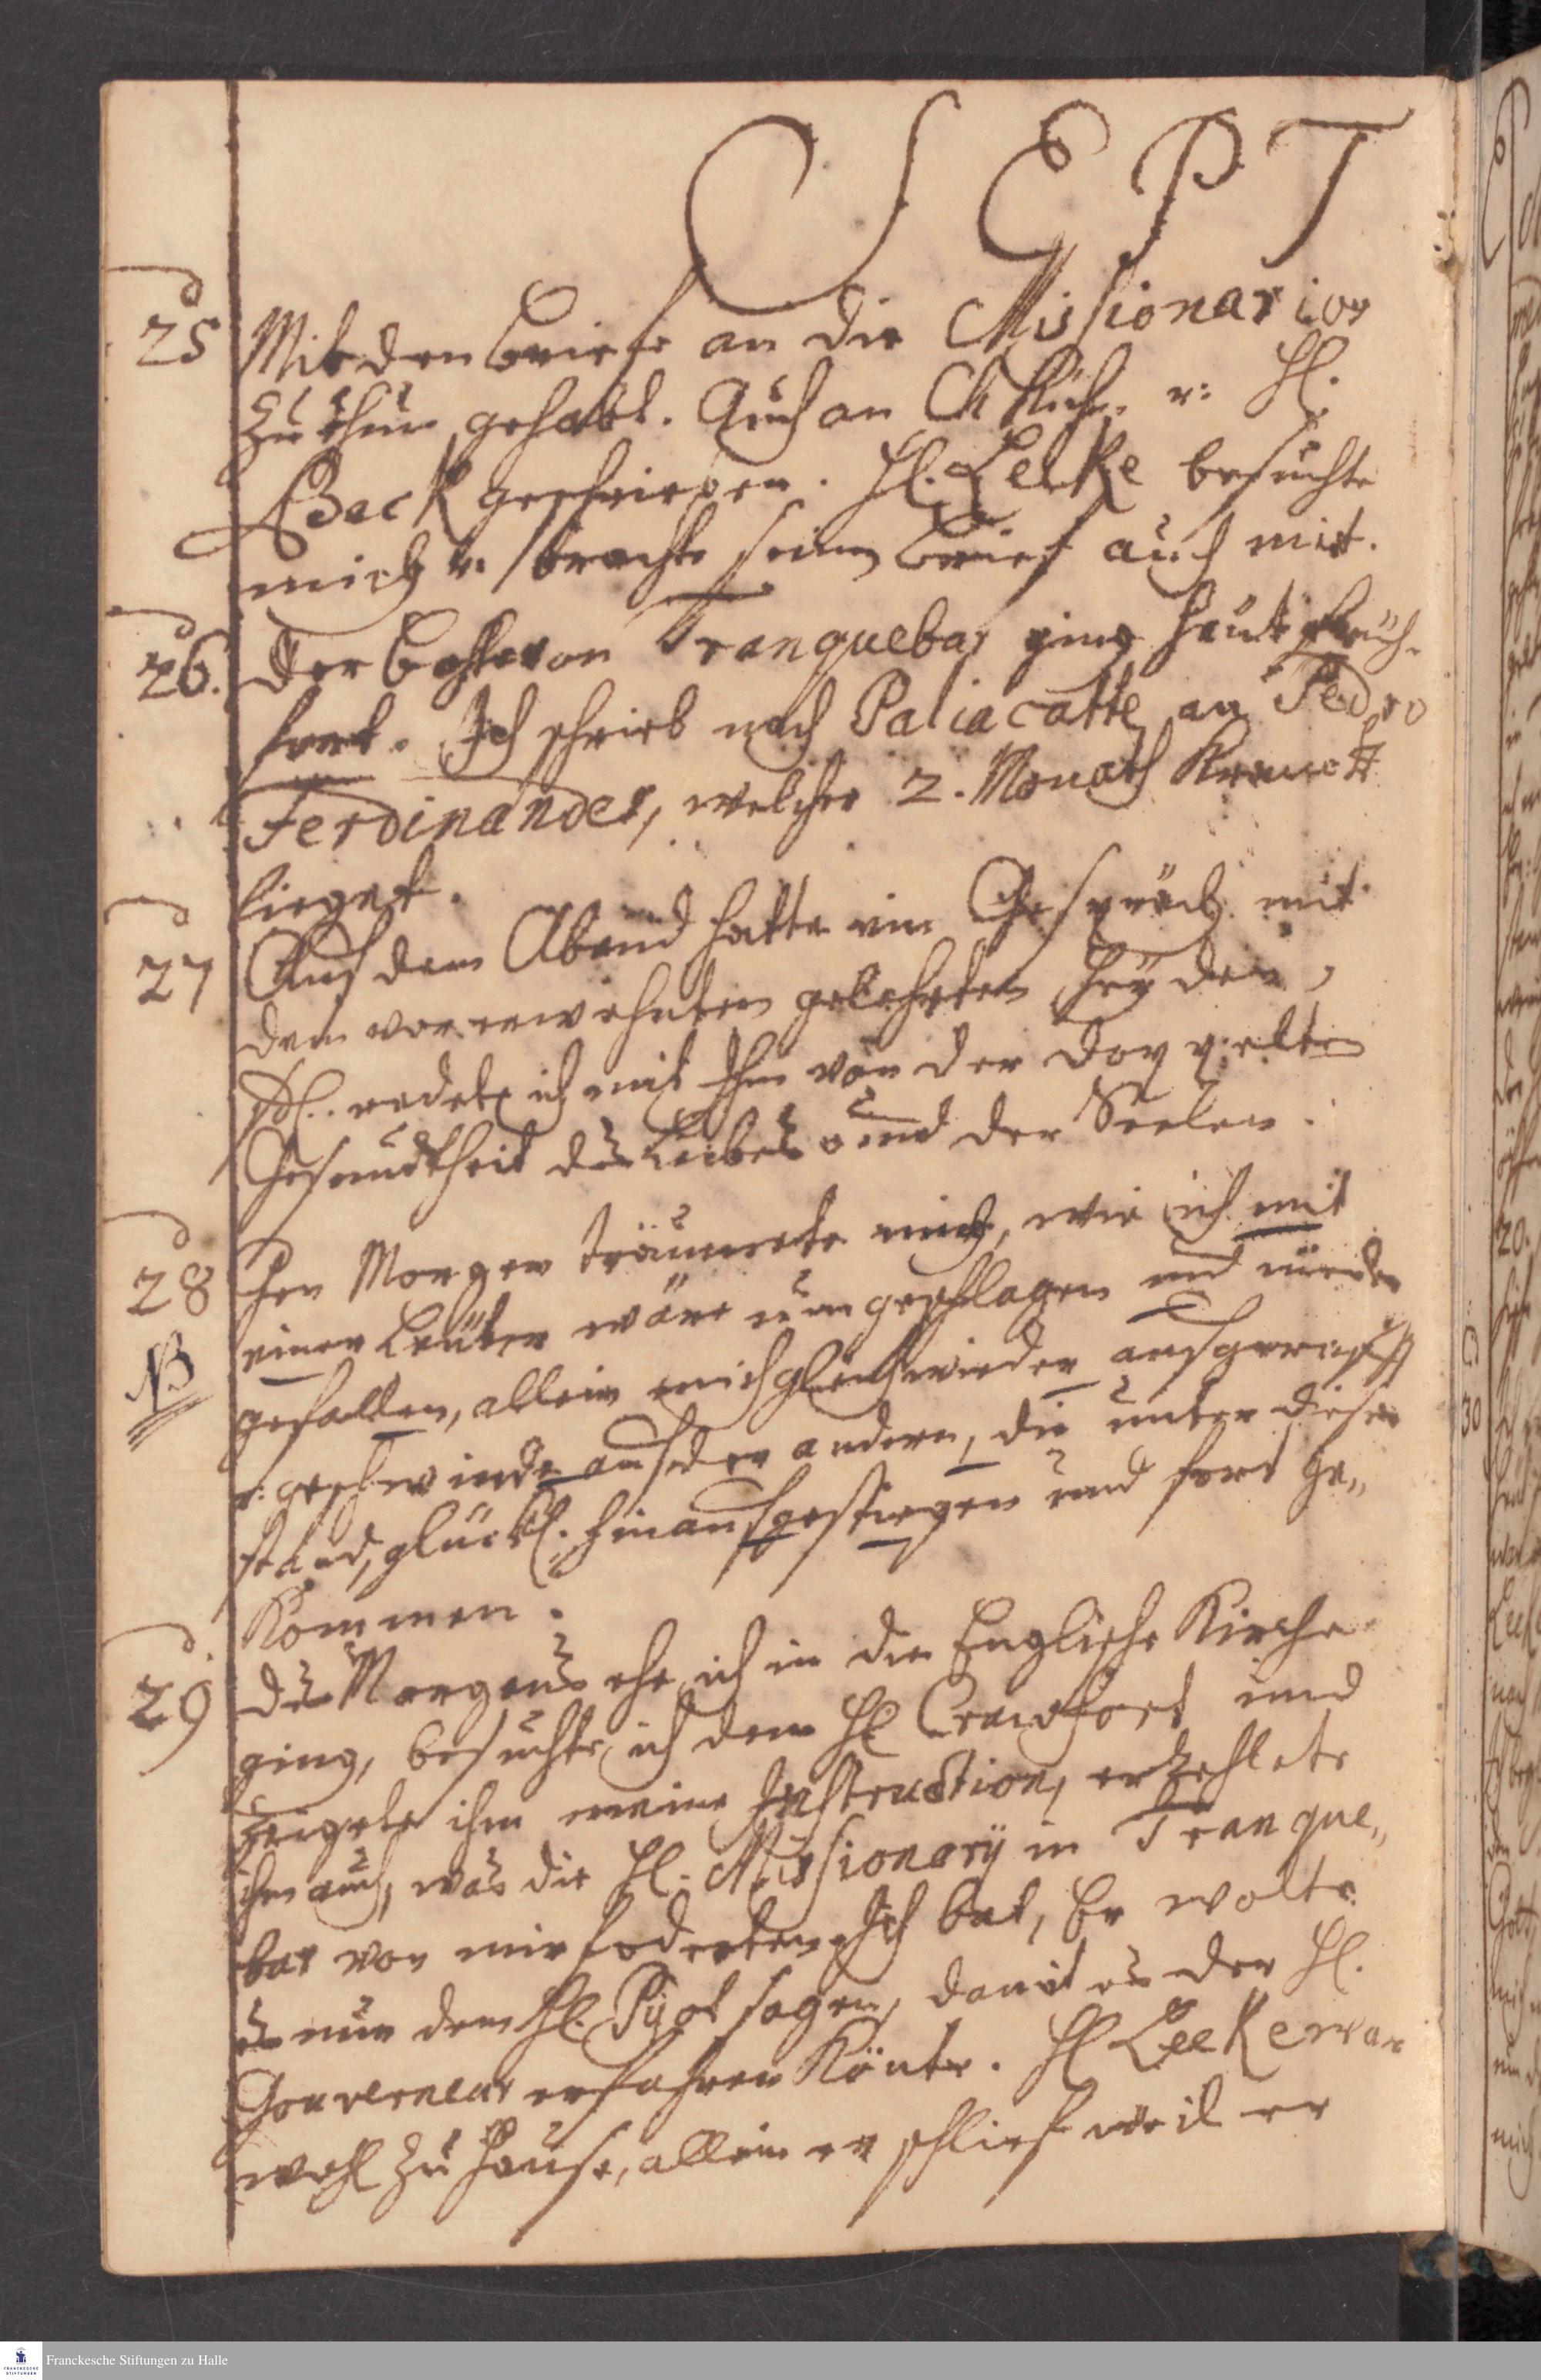 SEPT
25 Mit den Briefe an die Missionarios
zu thun gehabt. Auch an u: Hl.
Beck geschrieben. Hl. Leeke besuchte
mich u. brachte seinen Brief auch mit.
26. Der Bothe von Tranquebar ging heute früh
fort. Ich schrieb nach Paliacatte an Pedro
Ferdinander, welcher 2. Monath Kranck
lieget.
27 Auf dem Abend hatte ein Gespräch mit
dem vorerwehnten gelehrten Heyden,
redete ich mit Ihm von der doppelten
Gesundtheit des Leibes und der Seelen.
28 Den Morgen träumete mich, wie ich mit
NB einer Leuter wäre umgeschlagen und nieder
gefallen, allein mich gleich wieder aufgerafft
u: geschwinde auf der andern, die unter dieser
stand, glückl. hinaufgestiegen und fort ge„
kommen.
29 Des Morgens ehe ich in die Englische Kirche
ging, besuchte ich dem Hl Crawfort und
zeigete ihm meine Instruction, erzehlete
ihm auch, was die Hl. Missionarÿ in Tranque„
bar von mir foderten. Ich bat, Er wolte
es nur dem Hl. Pÿot sagen, damit es der Hl.
Gouverneur erfahren könte. Hl Leeke war
wohl zu Hause, allein er schlief weil er
Franckesche Stiftungen zu Halle